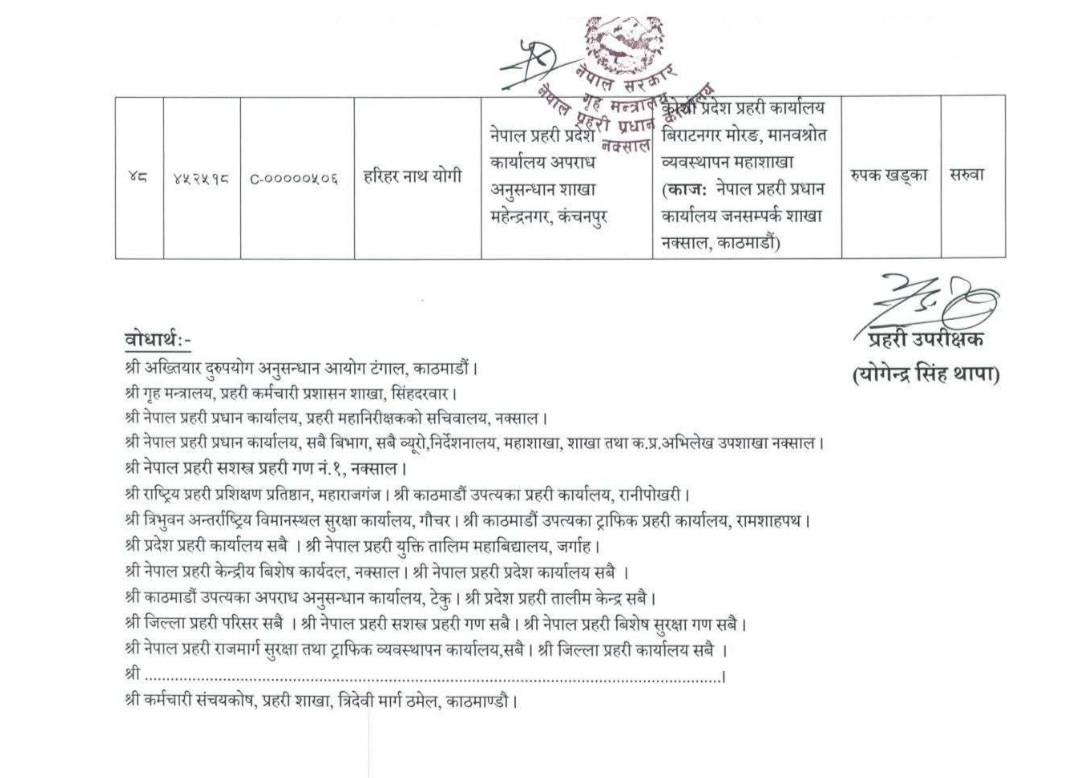 नेपाल सरकार
गृह मन्त्रालय
नेपाल प्रहरी प्रधान कार्यालय
नक्साल
४८
४५२५१८
C-०००००५०६
हरिहर नाथ योगी
नेपाल प्रहरी प्रदेश
कार्यालय अपराध
अनुसन्धान शाखा
महेन्द्रनगर, कंचनपुर
कोशी प्रदेश प्रहरी कार्यालय
बिराटनगर मोरङ, मानवश्रोत
व्यवस्थापन महाशाखा
(काज: नेपाल प्रहरी प्रधान
कार्यालय जनसम्पर्क शाखा
नक्साल, काठमाडौं)
रुपक खड्का
सरुवा
प्रहरी उपरीक्षक
(योगेन्द्र सिंह थापा)
वोधार्थ:-
श्री अख्तियार दुरुपयोग अनुसन्धान आयोग टंगाल, काठमाडौं ।
श्री गृह मन्त्रालय, प्रहरी कर्मचारी प्रशासन शाखा, सिंहदरवार ।
श्री नेपाल प्रहरी प्रधान कार्यालय, प्रहरी महानिरीक्षकको सचिवालय, नक्साल ।
श्री नेपाल प्रहरी प्रधान कार्यालय, सबै बिभाग, सबै व्यूरो,निर्देशनालय, महाशाखा, शाखा तथा क.प्र.अभिलेख उपशाखा नक्साल ।
श्री नेपाल प्रहरी सशस्त्र प्रहरी गण नं.१, नक्साल ।
श्री राष्ट्रिय प्रहरी प्रशिक्षण प्रतिष्ठान, महाराजगंज । श्री काठमाडौं उपत्यका प्रहरी कार्यालय, रानीपोखरी ।
श्री त्रिभुवन अन्तर्राष्ट्रिय विमानस्थल सुरक्षा कार्यालय, गौचर । श्री काठमाडौं उपत्यका ट्राफिक प्रहरी कार्यालय, रामशाहपथ ।
श्री प्रदेश प्रहरी कार्यालय सबै । श्री नेपाल प्रहरी युक्ति तालिम महाबिद्यालय, जर्गाह ।
श्री नेपाल प्रहरी केन्द्रीय बिशेष कार्यदल, नक्साल । श्री नेपाल प्रहरी प्रदेश कार्यालय सबै ।
श्री काठमाडौं उपत्यका अपराध अनुसन्धान कार्यालय, टेकु । श्री प्रदेश प्रहरी तालीम केन्द्र सबै ।
श्री जिल्ला प्रहरी परिसर सबै । श्री नेपाल प्रहरी सशस्त्र प्रहरी गण सबै । श्री नेपाल प्रहरी बिशेष सुरक्षा गण सबै ।
श्री नेपाल प्रहरी राजमार्ग सुरक्षा तथा ट्राफिक व्यवस्थापन कार्यालय,सबै । श्री जिल्ला प्रहरी कार्यालय सबै ।
श्री ........................................................................................................................।
श्री कर्मचारी संचयकोष, प्रहरी शाखा, त्रिदेवी मार्ग ठमेल, काठमाण्डौ ।